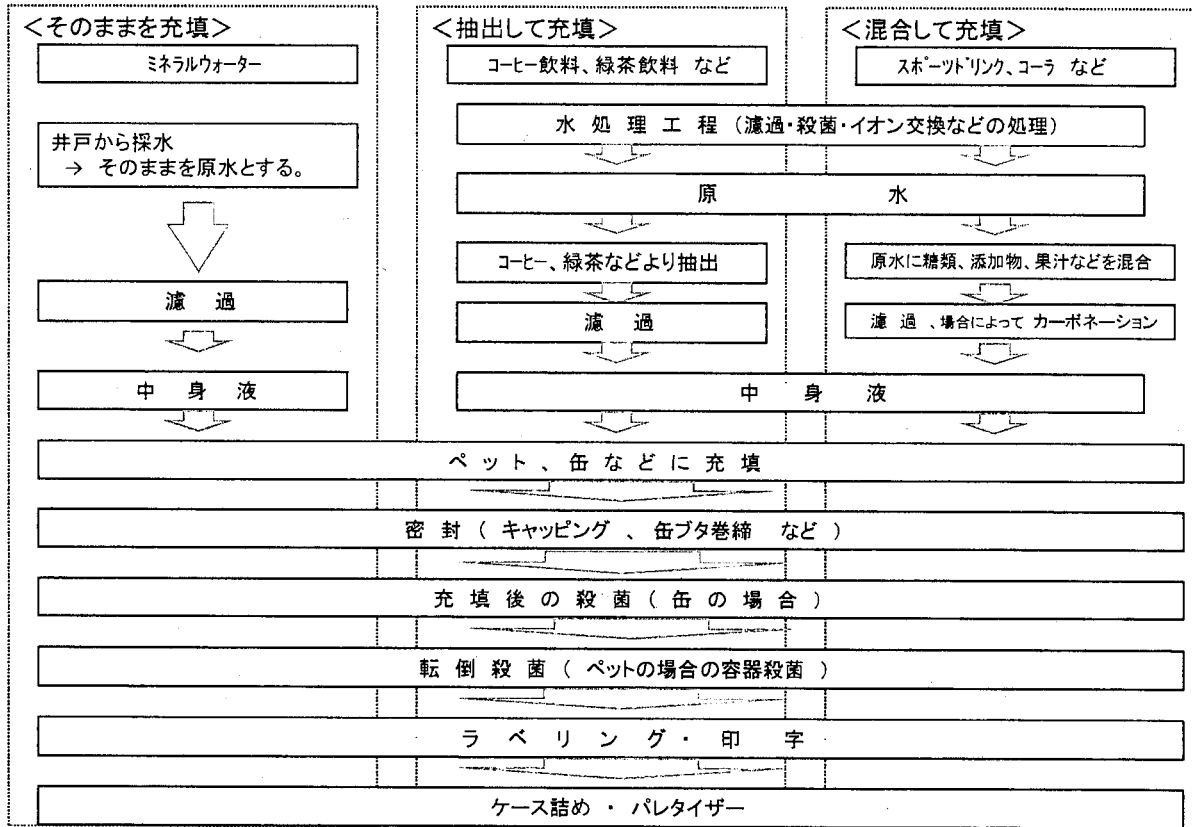 ＜そのままを充填＞
ミネラルウォーター
井戸から採水
→ そのままを原水とする。
濾 過
中 身 液
＜抽出して充填＞
コーヒー飲料、緑茶飲料 など
＜混合して充填＞
スポーツドリンク、コーラ など
水 処 理 工 程 （濾過・殺菌・イオン交換などの処理）
原 水
コーヒー、緑茶などより抽出
濾 過
原水に糖類、添加物、果汁などを混合
濾 過 、場合によって カーボネーション
中 身 液
ペ ッ ト 、 缶 な ど に 充 填
密 封 （ キャッピング 、 缶ブタ巻締 など ）
充 填 後 の 殺 菌 （ 缶 の 場 合 ）
転 倒 殺 菌 （ ペットの場合の容器殺菌 ）
ラ ベ リ ン グ ・ 印 字
ケース詰め ・ パレタイザー